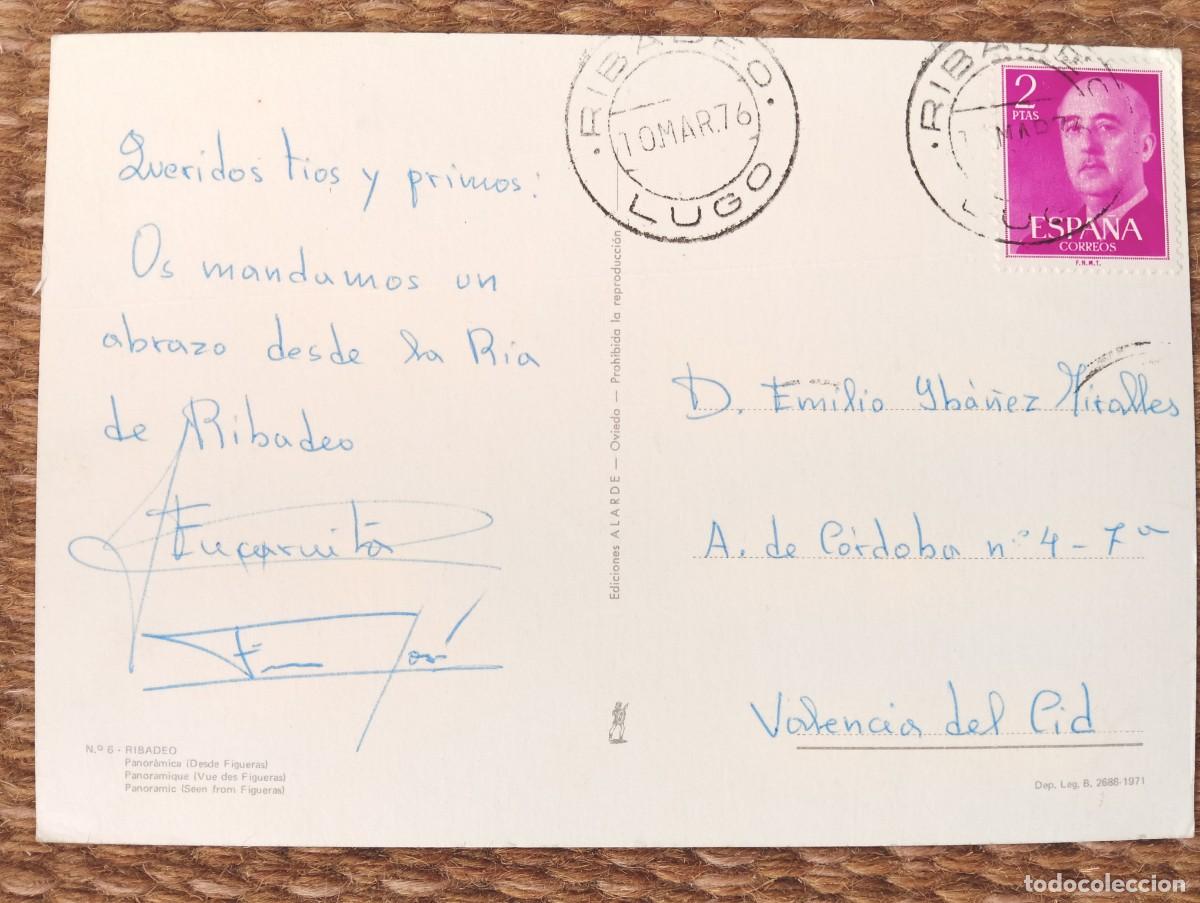 Queridos tios y primos:
Os mandamos un
abrazo desde la Ria
de Ribadeo
Encarnita
José
N.º 6 - RIBADEO
Panorámica (Desde Figueras)
Panoramique (Vue des Figueras)
Panoramic (Seen from Figueras)
Ediciones ALARDE — Oviedo — Prohibida la reproducción
RIBADEO.
10 MAR. 76
LUGO
RIBADEO
MAR 76
LUGO
2
PTAS
ESPAÑA
CORREOS
F.N.M.T.
D. Emilio Ybáñez Miralles
A. de Córdoba nº 4 - 7ª
Valencia del Cid
Dep. Leg. B. 2686-1971
todocoleccion